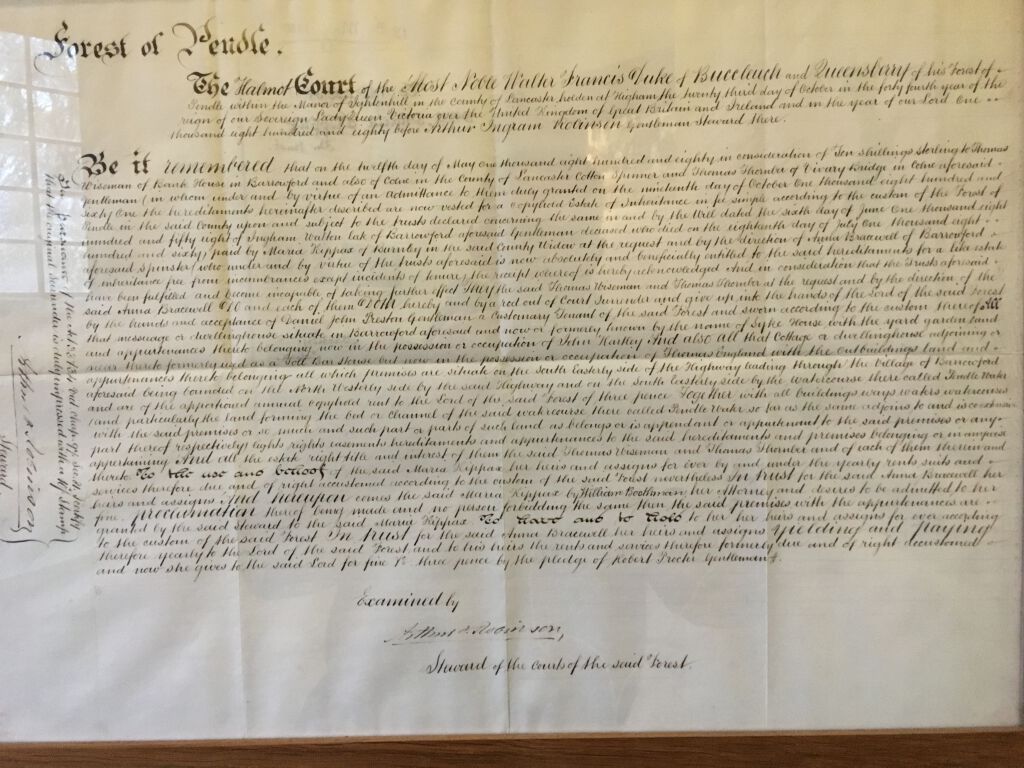 Forest of Pendle.
The Halmot Court of the Most Noble Walter Francis Duke of Buccleuch and Queensberry of his Forest of
Pendle within the Manor of Ightenhill in the County of Lancaster holden at Higham the twenty third day of October in the forty fourth year of the
reign of our Sovereign Lady Queen Victoria over the United Kingdom of Great Britain and Ireland and in the year of our Lord One
thousand eight hundred and eighty before Arthur Ingram Robinson Gentleman Steward there.
Be it remembered that on the twelfth day of May one thousand eight hundred and eighty in consideration of Ten shillings sterling to Thomas
Wiseman of Bank House in Barrowford and also of Colne in the County of Lancaster Cotton Spinner and Thomas Thornber of Vivary Bridge in Colne aforesaid
Gentleman (in whom under and by virtue of an Admittance to them duly granted on the nineteenth day of October One thousand eight hundred and
sixty One the hereditaments hereinafter described are now vested for a Copyhold Estate of Inheritance in fee simple according to the custom of the Forest of
Pendle in the said County upon and subject to the trusts declared concerning the same in and by the Will dated the sixth day of June One thousand eight
hundred and fifty eight of Ingham Walton late of Barrowford aforesaid Gentleman deceased who died on the eighteenth day of July One thousand eight
hundred and sixty) paid by Maria Keppax of Barnby in the said County Widow at the request and by the direction of Anna Bracewell of Barrowford
aforesaid Spinster (who under and by virtue of the trusts aforesaid is now absolutely and beneficially entitled to the said hereditaments for a like estate
of inheritance free from incumbrances except incidents of tenure) the receipt whereof is hereby acknowledged And in consideration that the Trusts aforesaid
have been fulfilled and become incapable of taking further effect They the said Thomas Wiseman and Thomas Thornber at the request and by the direction of the
said Anna Bracewell Do and each of them Doth hereby and by a rod out of Court Surrender and give up into the hands of the Lord of the said Forest
by the hands and acceptance of Daniel John Preston Gentleman a Customary Tenant of the said Forest and sworn according to the custom thereof All
that messuage or dwellinghouse situate in Barrowford aforesaid and now or formerly known by the name of Syke House with the yard garden and
and appurtenances thereto belonging now in the possession or occupation of John Hartley And also All that Cottage or dwellinghouse adjoining or
near thereto formerly used as a Toll Bar House but now in the possession or occupation of Thomas England with the outbuildings land and
appurtenances thereto belonging all which premises are situate on the South Easterly side of the Highway leading through the Village of Barrowford
aforesaid being bounded on the North Westerly side by the said Highway and on the South Easterly side by the watercourse there called Pendle Water
and are of the apportioned annual copyhold rent to the Lord of the said Forest of three pence Together with all buildings ways waters watercourses
(and particularly the land forming the bed or channel of the said watercourse there called Pendle Water so far as the same adjoins to and is coextensive
with the said premises or so much and such part or parts of such land as belongs or is appendant or appurtenant to the said premises or any
part thereof respectively) lights rights easements hereditaments and appurtenances to the said hereditaments and premises belonging or in anywise
appertaining And all the estate right title and interest of them the said Thomas Wiseman and Thomas Thornber and of each of them therein and
thereto To the use and behoof of the said Maria Keppax her heirs and assigns for ever by and under the yearly rents suits and
services therefore due and of right accustomed according to the custom of the said Forest nevertheless In trust for the said Anna Bracewell her
heirs and assigns And hereupon comes the said Maria Keppax by William Bootham her Attorney and desires to be admitted to her
fine proclamation thereof being made and no person forbidding the same then the said premises with the appurtenances are
granted by the said Steward to the said Maria Keppax To have and to hold to her her heirs and assigns for ever according
to the custom of the said Forest In trust for the said Anna Bracewell her heirs and assigns Yielding and Paying
therefore yearly to the Lord of the said Forest and to his heirs the rents and services therefore formerly due and of right accustomed
and now she gives to the said Lord for fine three pence by the pledge of Robert Procter Gentleman
Examined by
Arthur I. Robinson,
Steward of the Courts of the said Forest.
In pursuance of the Act
that the Original Surrender is duly impressed with a Stamp
Arthur I. Robinson
Steward.